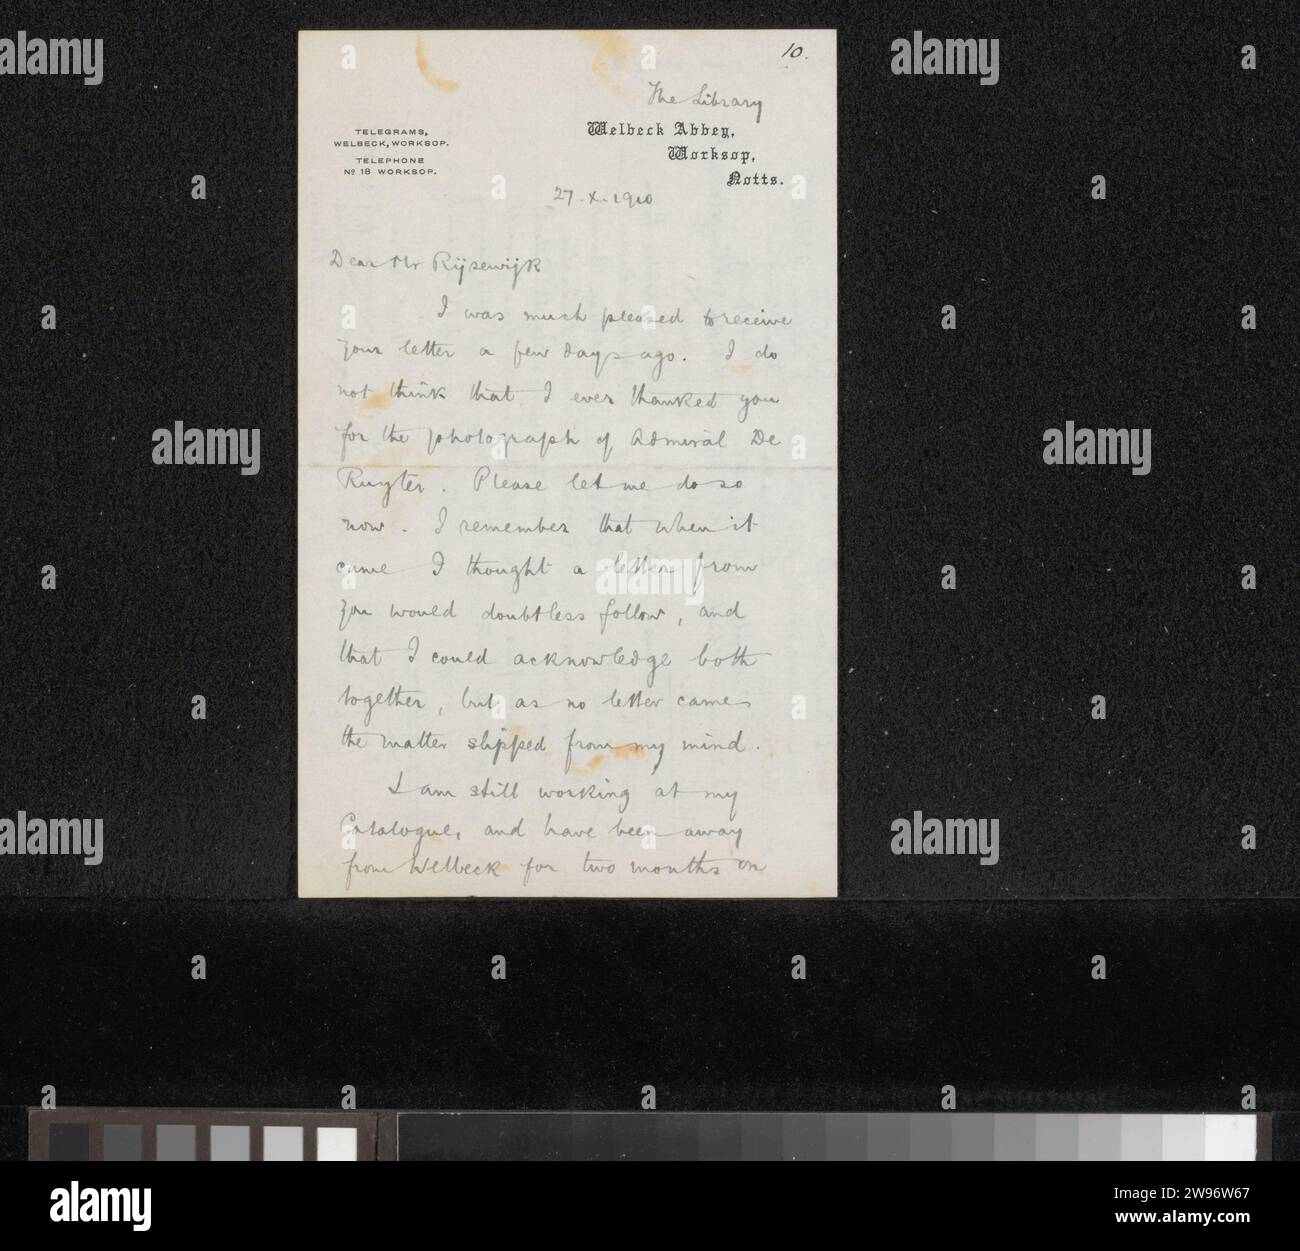 10.
The Library
TELEGRAMS,
WELBECK, WORKSOP.
TELEPHONE
Nº 18 WORKSOP.
Welbeck Abbey,
Worksop,
Notts.
27. X. 1910
Dear Mr Rijsewijk
I was much pleased to receive
your letter a few days ago. I do
not think that I ever thanked you
for the photograph of Admiral De
Ruyter. Please let me do so
now. I remember that when it
came I thought a letter from
you would doubtless follow, and
that I could acknowledge both
together, but as no letter came
the matter slipped from my mind.
I am still working at my
Catalogue, and have been away
from Welbeck for two months on
alamy
Image ID: 2W96W67
www.alamy.com